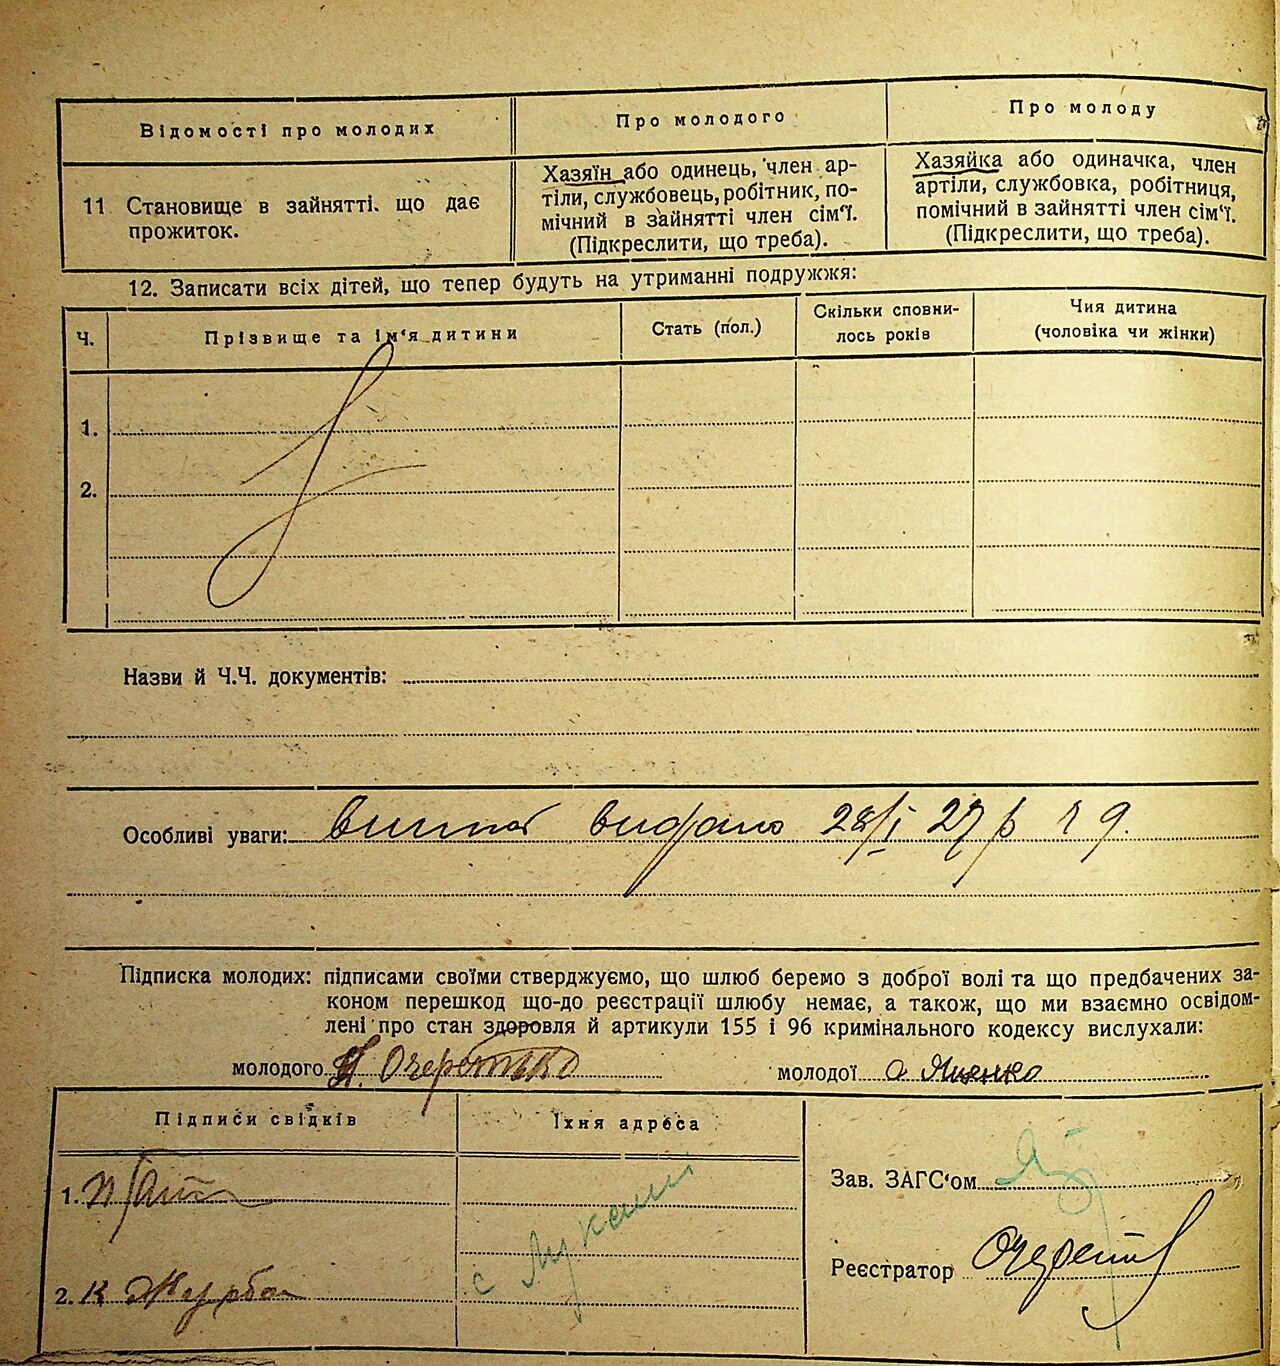 Відомості про молодих
Про молодого
Про молоду
11 Становище в зайнятті. що дає
прожиток.
Хазяїн або одинець, член ар-
тіли, службовець, робітник, по-
мічний в зайнятті член сім'ї.
(Підкреслити, що треба).
Хазяйка або одиначка, член
артіли, службовка, робітниця,
помічний в зайнятті член сім'ї.
(Підкреслити, що треба).
12. Записати всіх дітей, що тепер будуть на утриманні подружжя:
Ч.
Прізвище та ім'я дитини
Стать (пол.)
Скільки сповни-
лось років
Чия дитина
(чоловіка чи жінки)
1.
2.
Назви й Ч.Ч. документів:
Особливі уваги: видано 28/I 27 р 9.
Підписка молодих: підписами своїми стверджуємо, що шлюб беремо з доброї волі та що предбачених за-
коном перешкод що-до реєстрації шлюбу немає, а також, що ми взаємно освідом-
лені про стан здоровля й артикули 155 і 96 кримінального кодексу вислухали:
молодого Очеретько
молодої Яценко
Підписи свідків
Їхня адреса
1.
2. К Журба
с
Зав. ЗАГС'ом
Реєстратор